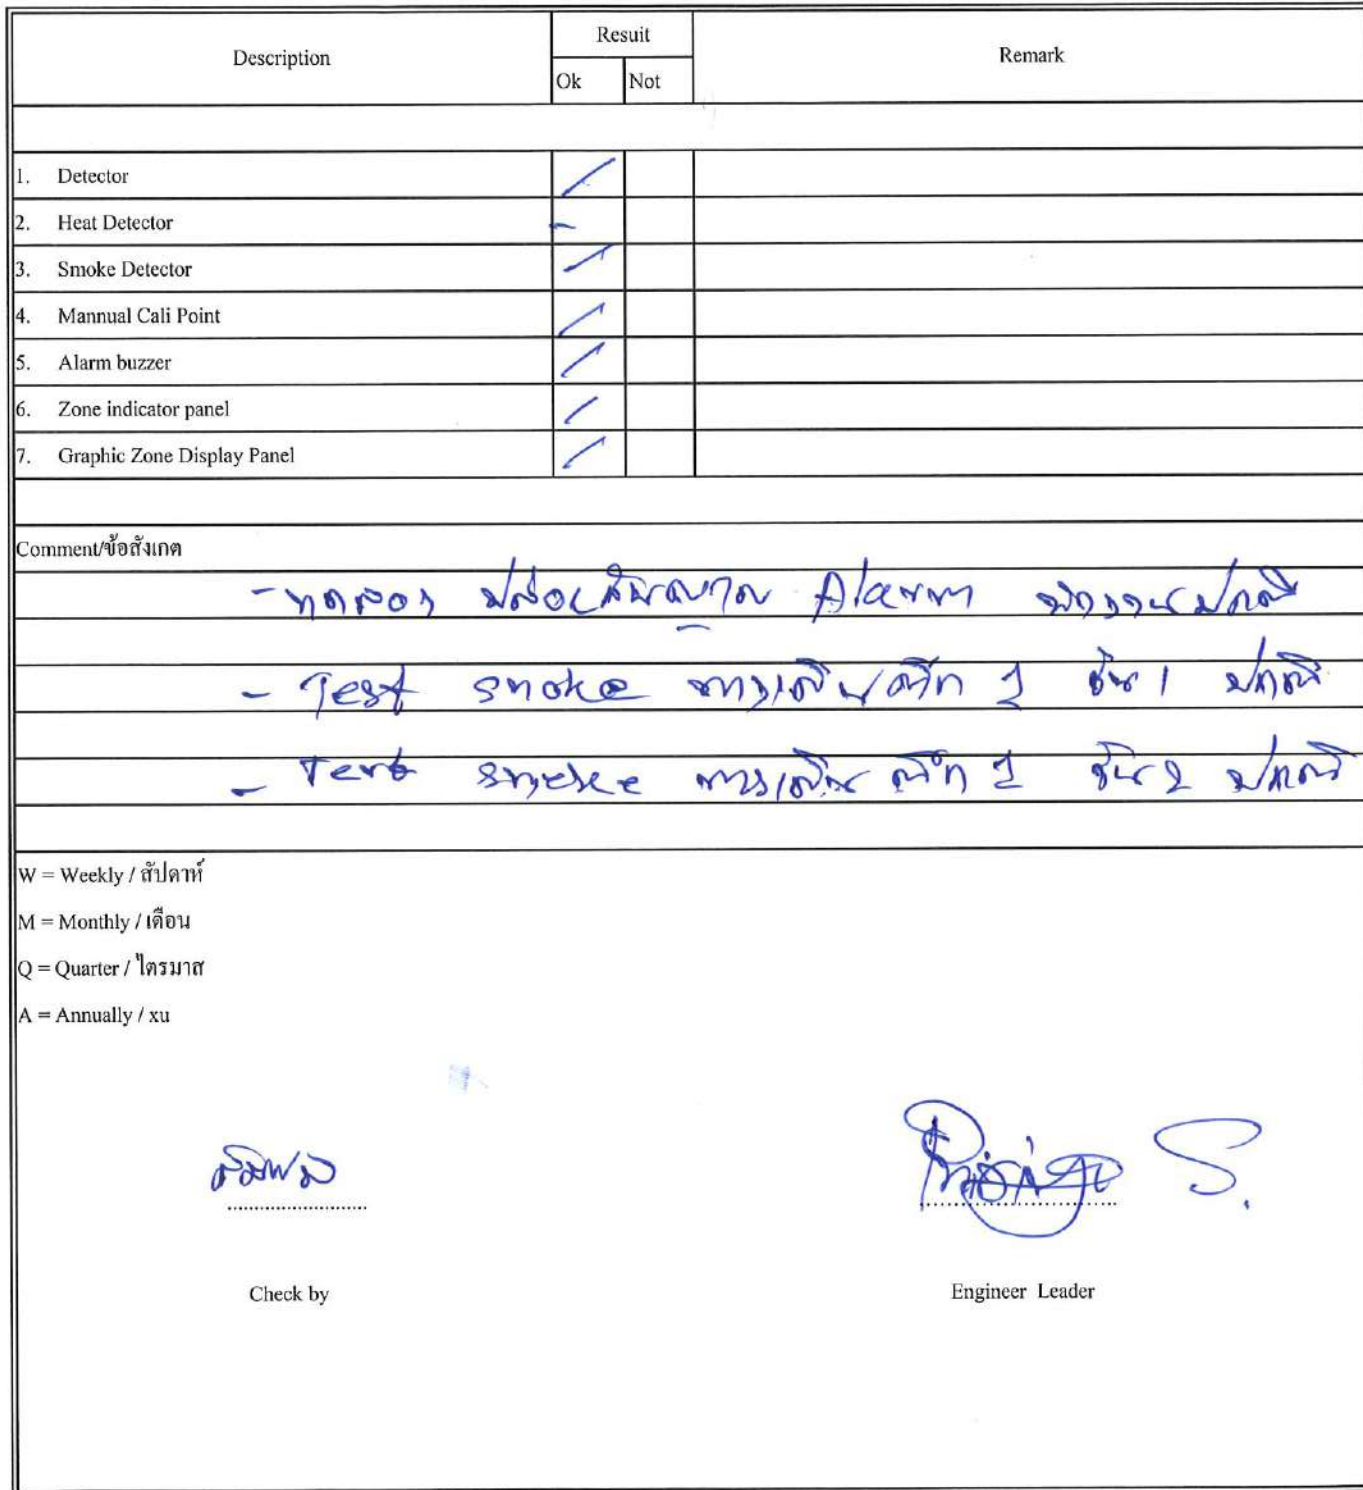 Description Resuit Remark
Ok Not
1. Detector /
2. Heat Detector -
3. Smoke Detector /
4. Mannual Cali Point /
5. Alarm buzzer /
6. Zone indicator panel /
7. Graphic Zone Display Panel /
Comment/ข้อสังเกต
- ทดลอง ปล่อยสัญญาณ Alarm ทำงานปกติ
- Test smoke ทางเดินตึก 1 ชั้น 1 ปกติ
- Test smoke ทางเดิน ตึก 1 ชั้น 2 ปกติ
W = Weekly / สัปดาห์
M = Monthly / เดือน
Q = Quarter / ไตรมาส
A = Annually / xu
S.
Check by Engineer Leader